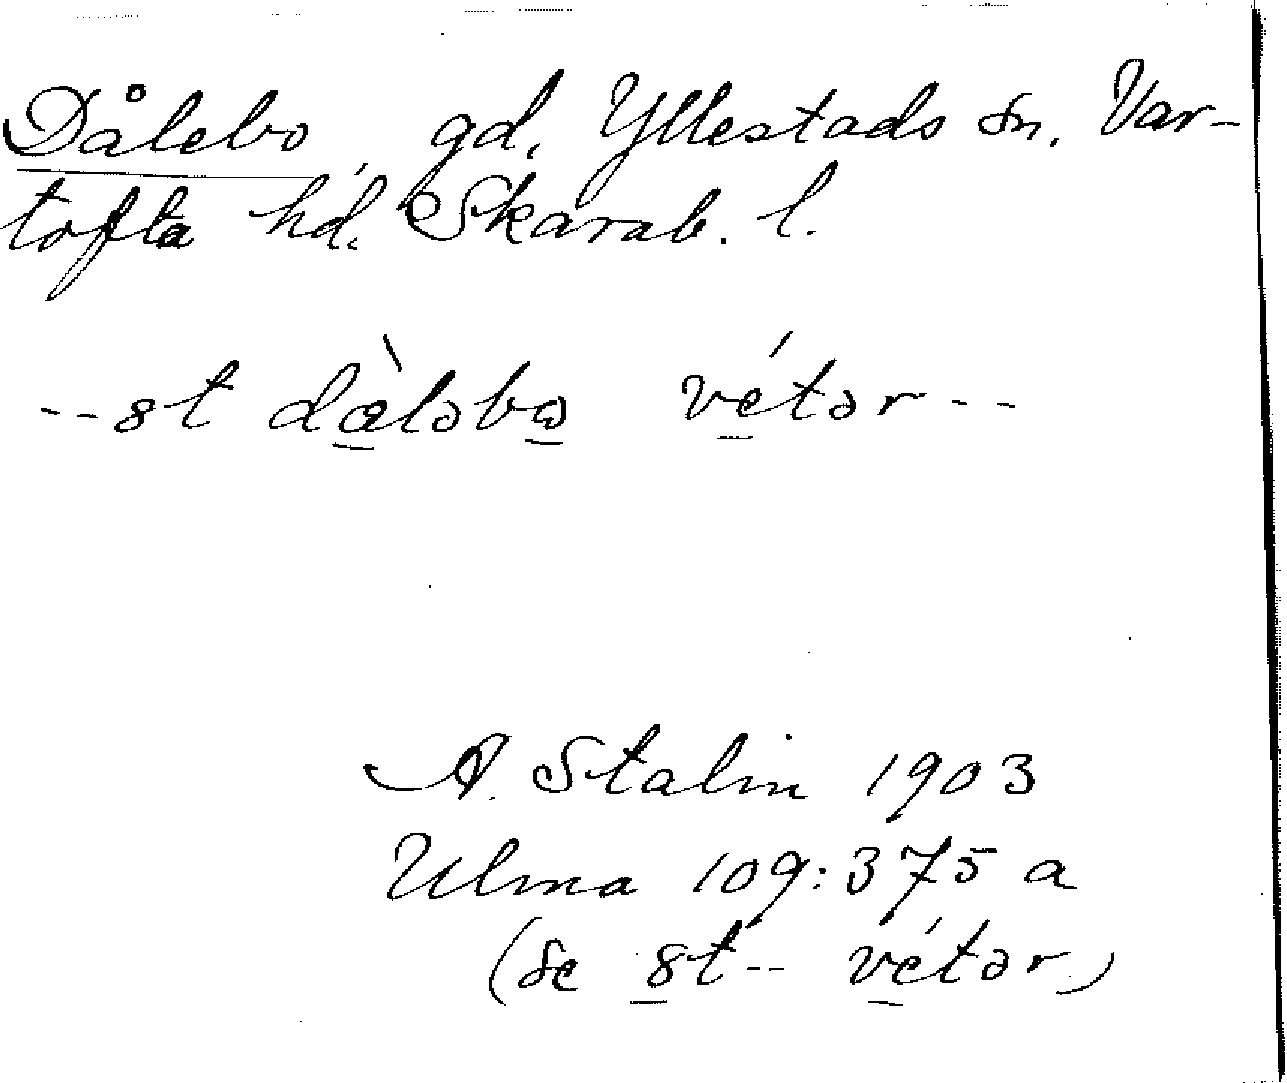 Dålebo, gd. Yllestads sn. Var-
tofta hd. Skarab. l.
--st dàləbω vétər--
A. Stalin 1903
Ulma 109:375 a
(se st-- vétər)